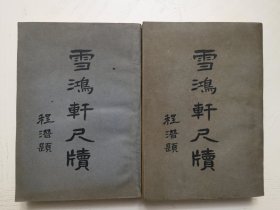 雪鴻軒尺牘
程潛題
雪鴻軒尺牘
程潛題